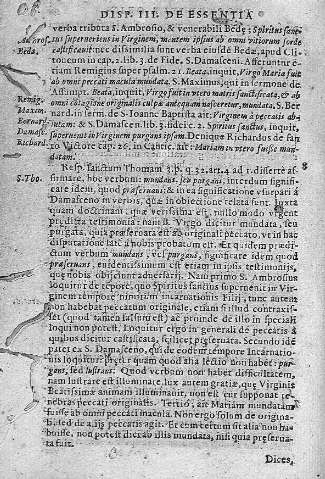 DISP. III. DE ESSENTIA
verba tributa S. Ambrosio, & venerabili Bedæ: Spiritus san-
Ambros. superveniens in Virginem, mentem ipsius ab omni vitiorum sorde
Beda. castificavit: nec dissimilia sunt verba eiusdē Bedæ, apud Cli-
toueum in cap. 2. lib. 3. de Fide, S. Damasceni. Asseruntur e-
tiam Remigius super psalm. 21. Beata, inquit, Virgo Maria fuit
ab omni peccati macula mundata. S. Maximus, qui in sermone de
Assumpt. Beata, inquit, Virgo
Remig. omni
Maxim. nard. in serm. de S. Ioanne Baptista ait: Virginem à peccatis ab-
Bernar. & S. Damascen. lib. 3. cap. 2. Spiritus sanctus, inquit,
Damasc. in Virginem purgans ipsam. Denique Richardus de san-
Richard. Victore cap. 26. in Cantic. ait: Mariam in utero fuisse mun-
datam.
S. Tho. Resp. sanctum Thomam 3. p. q. 32. art. 4. ad 1. disertè asse-
rere, hoc verbum: mundat, seu purgans, interdum signifi-
care idem, quod præservans: & in ea significatione usurpari à
Damasceno in verbis, quæ in obiectione relata sunt. Iuxta
quam doctrinam, quæ verissima est, nullo modo urgent
prædicta testimonia: nam S. Virgo dicitur mundata, seu
purgata, quia præservata est ab originali peccato, ut in hac
disputatione late à nobis probatum est. Et quidem prædi-
ctum verbum mundans, vel purgans, significare idem quod
præservans, evidentissimum est etiam in ijs testimonijs,
quæ nobis obijciunt adversarij. Nam primo S. Ambrosius
loquitur de tempore, quo Spiritus sanctus supervenit in Vir-
ginem tempore nimirum incarnationis Filij, tunc autem
non habebat peccatum originale, etiam si illud contraxis-
set
loqui non potest. Loquitur ergo in generali de peccatis &
quibus dicitur castificata, scilicet præservata. Secundo idē
patet ex S. Damasceno, qui de eodem tempore Incarnatio-
nis loquitur: præter quam quod alia lectio non habet: pur-
gans, sed lustrans. Quod verbum non habet difficultatem,
nam lustrare est illuminare, lux autem gratiæ, quæ Virginis
Beatissimæ animam illuminavit, non est cur supponat te-
nebras peccati originalis. Tertio, ait Mariam mundatam
fuisse ab omni peccati macula. Non ergo solum de origina-
li, sed de alijs peccatis agit. Et cum certum sit alia non ha-
buisse, non potest dici ab illis mundata, nisi quia præserva-
ta fuit.
Dices,